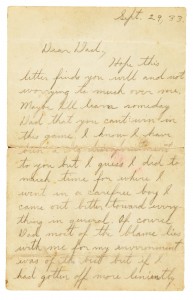 Sept. 29, 33
Dear Dad,
Hope this
letter finds you well and not
worrying to much over me.
Maybe I'll learn someday
Dad that you can't win in
the game. I know I have
to you but I guess I did to
much time for where I
went in a carefree boy I
came out bitter toward every
thing in general. Of course
Dad most of the blame lies
with me for my environment
was of the best but if I
had gotten off more leniently